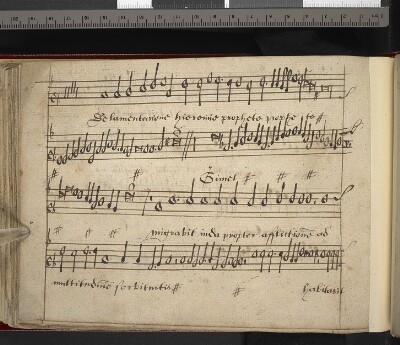 De lamentatione hieremie prophete prophe te
Gimel
migrabit iuda propter afflictione ad
multitudine servitutis
habitavit